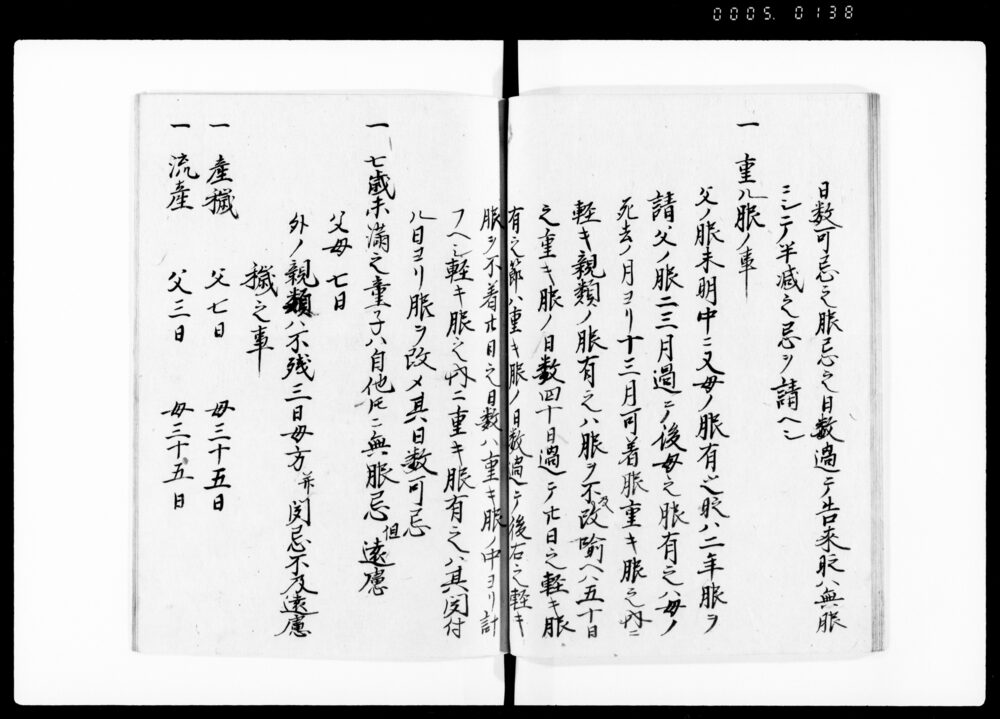 0005. 0138
日数可忌之服忌之日数過テ告来時ハ無服
ニシテ半減之忌ヲ請ヘシ
一 重ル服ノ事
父ノ服未明中ニ又母ノ服有之時ハ二年服ヲ
請父ノ服二三月過ニノ後母之服有之ハ母ノ
死去ノ月ヨリ十三月可着服重キ服之内ニ
軽キ親類ノ服有之ハ服ヲ不及改喩ヘハ五十日
之重キ服ノ日数四十日過テ廿日之軽キ服
有之節ハ重キ服ノ日数過テ後右之軽キ
服ヲ不着廿日之日数ハ重キ服ノ中ヨリ計
フヘシ軽キ服之内ニ重キ服有之ハ其聞付
ル日ヨリ服ヲ改メ其日数可忌
一 七歳未満之童子ハ自他共ニ無服忌但遠慮
父母七日
外ノ親類ハ不残三日母方并聞忌不及遠慮
穢之事
一 産穢 父七日 母三十五日
一 流産 父三日 母三十五日